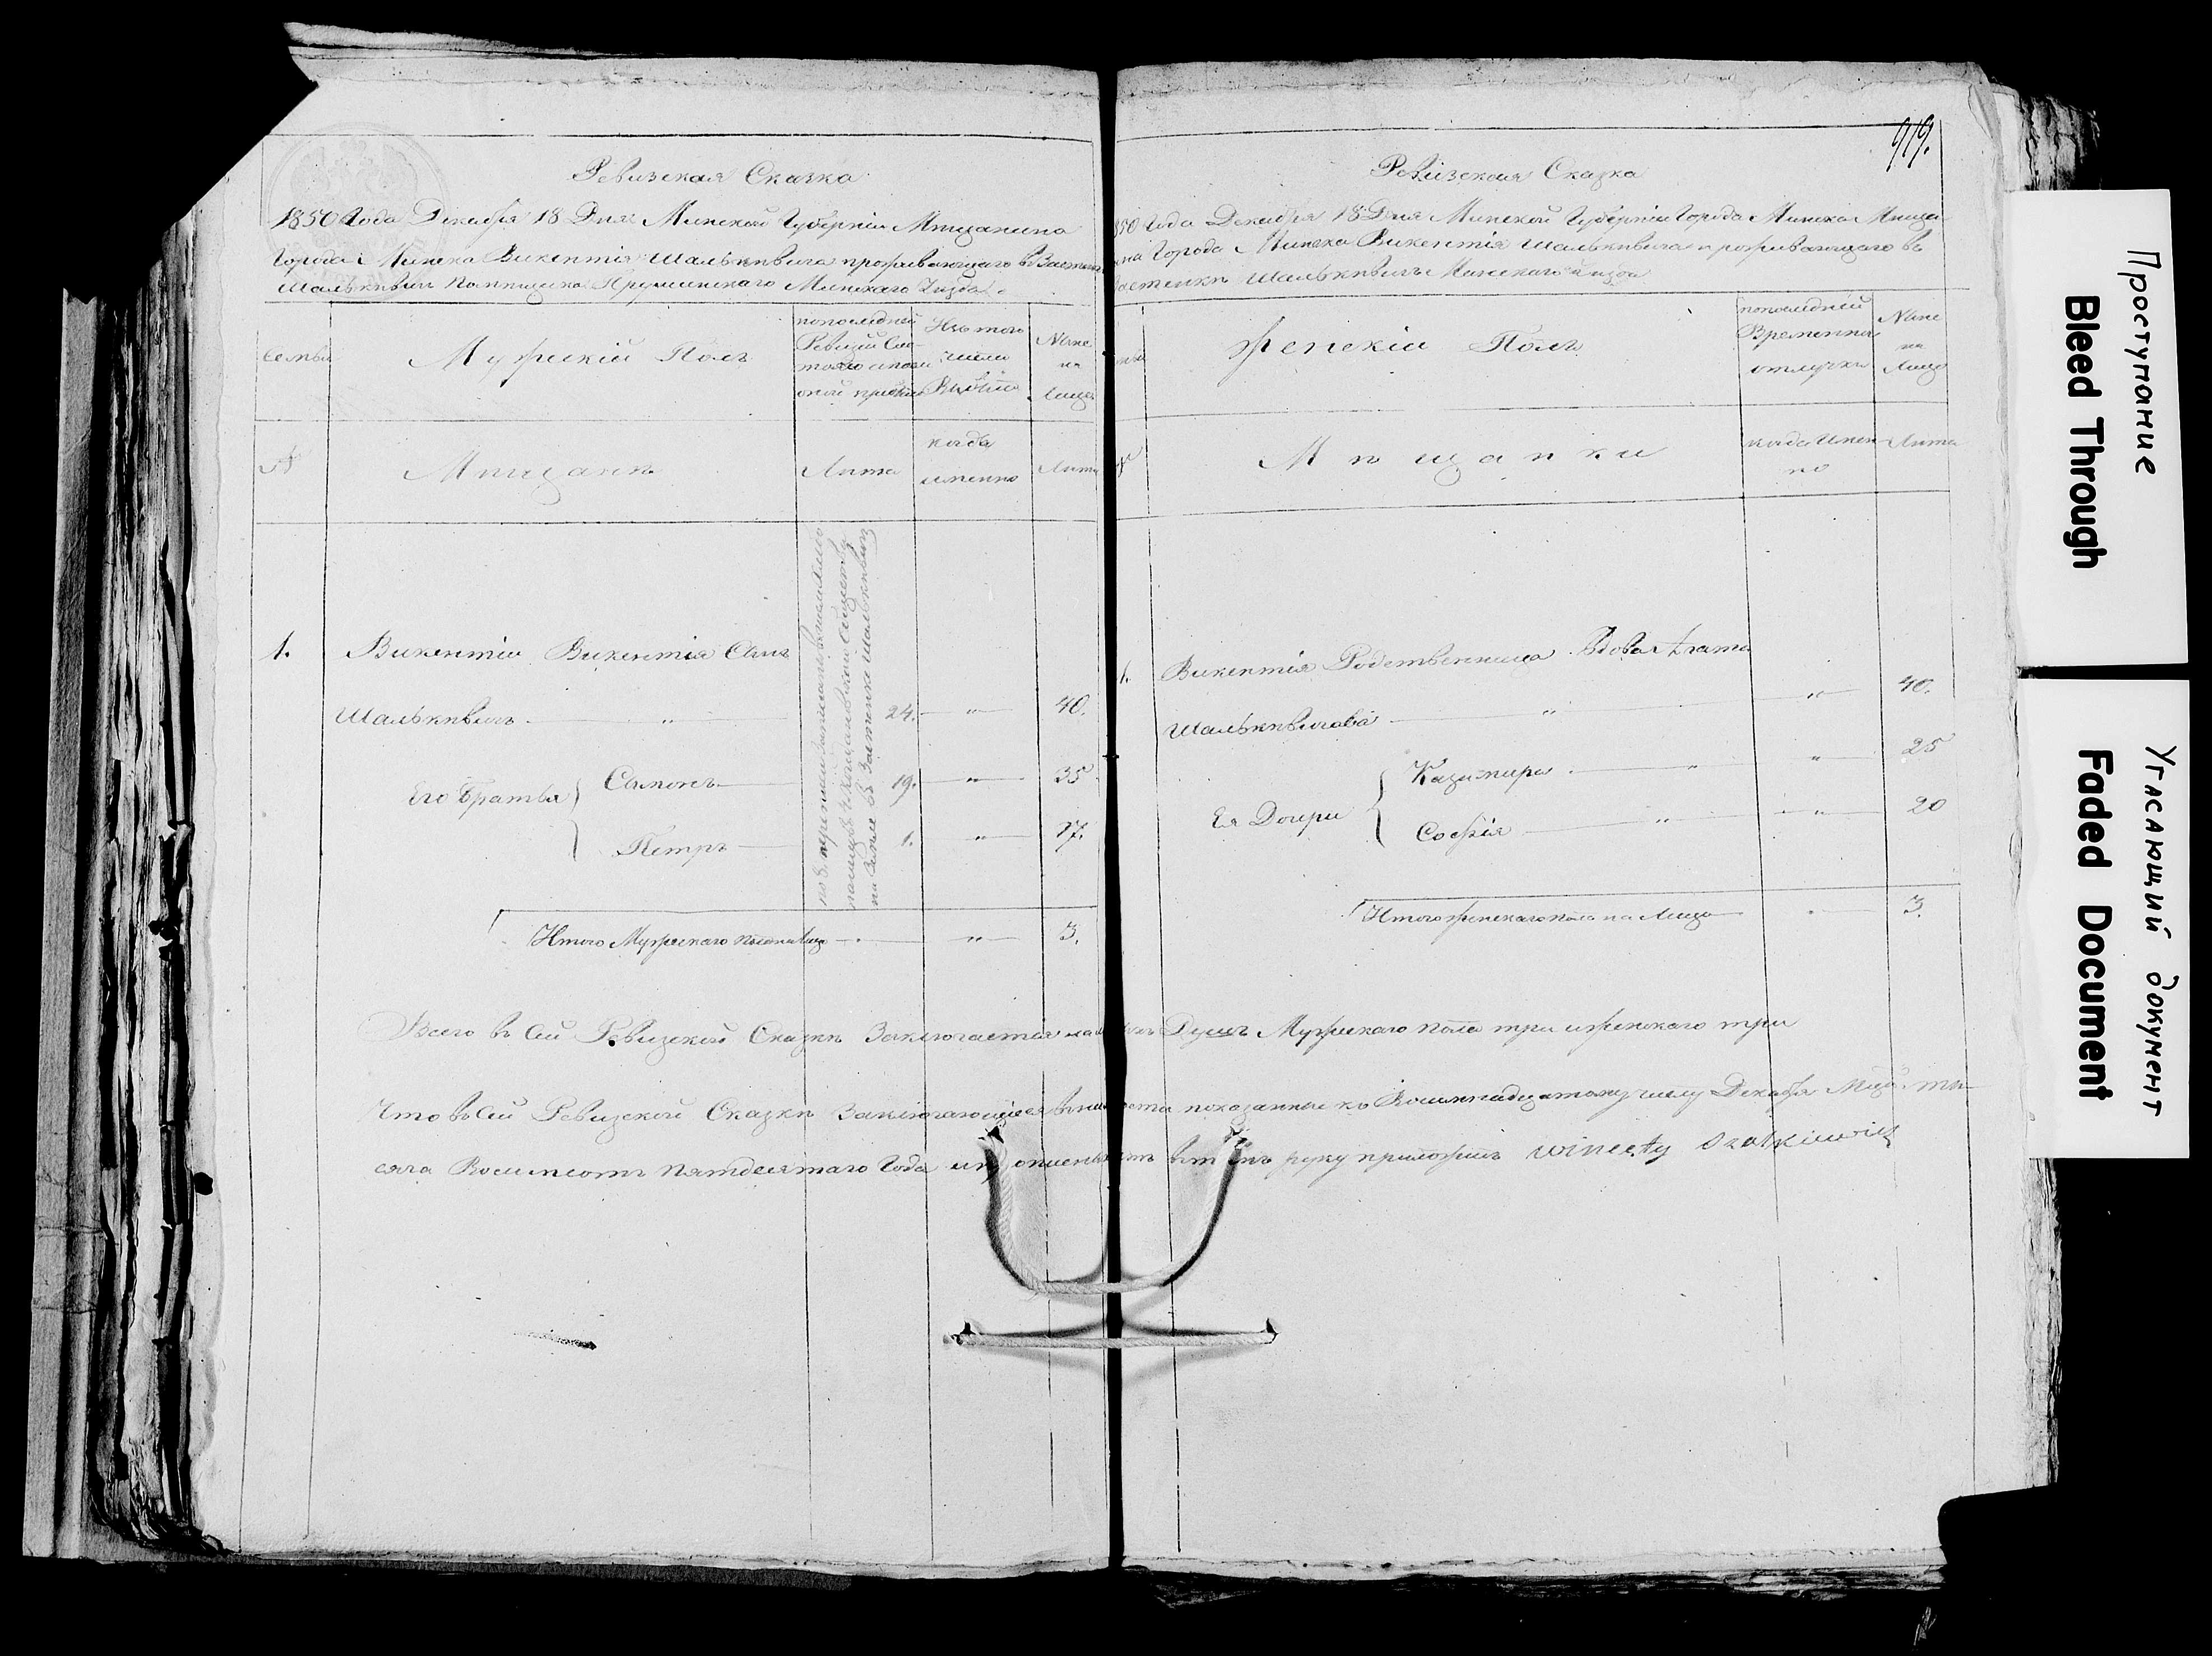 919.
Ревизская Сказка
1850 Года Декабря 18 Дня Минской Губерніи Мѣщанина
Города Минска Викентія Шалькѣвича проживающаго въ Застѣнк
Шалькѣвичи Помѣщика Минскаго Уезда
семьи
Мужескій Полъ
по последней Ревизіи Сос-
тояло и после
оной прибыло
Изъ того
числа
Выбыло
Ныне
на
Лицо
№
Мѣщане
Лѣта
когда
именно
Лѣта
1. Викентій Викентія Сынъ
Шалькѣвичъ — „ — 24. — „ — 40.
Его Братья { Самонъ — 19. — „ — 35
Петръ — 1. — „ — 17.
на Земле въ Застѣнке Шалькѣвичи
Итого Мужескаго пола на Лицо — „ — 3.
Ревизская Сказка
1850 Года Декабря 18 Дня Минской Губерніи Города Минска Мѣща-
нина Города Минска Викентія Шалькѣвича проживающаго въ
Застенкѣ Шалькѣвичъ Минскаго Уезда
Женскій Полъ
по последней
Временно
отлучки
Ныне
на
Лицо
№
Мѣщанки
когда имен
но
Лѣта
1. Викентія Родственница Вдова Агата
Шалькѣвичова — „ — „ — 40.
Ея Дочери { Казимира — „ — „ — 25
Софія — „ — „ — 20
Итого женскаго пола на Лицо — 3.
Всего въ Сей Ревизской Сказкѣ Заключается Душъ Мужескаго пола три и женскаго три
Что въ Сей Ревизской Сказкѣ Заключающіеся лета показанные къ Восемнадцатому числу Декабря Мца. ты-
сяча Восимсотъ пятдесятаго Года въ томъ руку приложилъ Wincęty Szalkiewicz
Проступание
Bleed Through
Угасающий документ
Faded Document